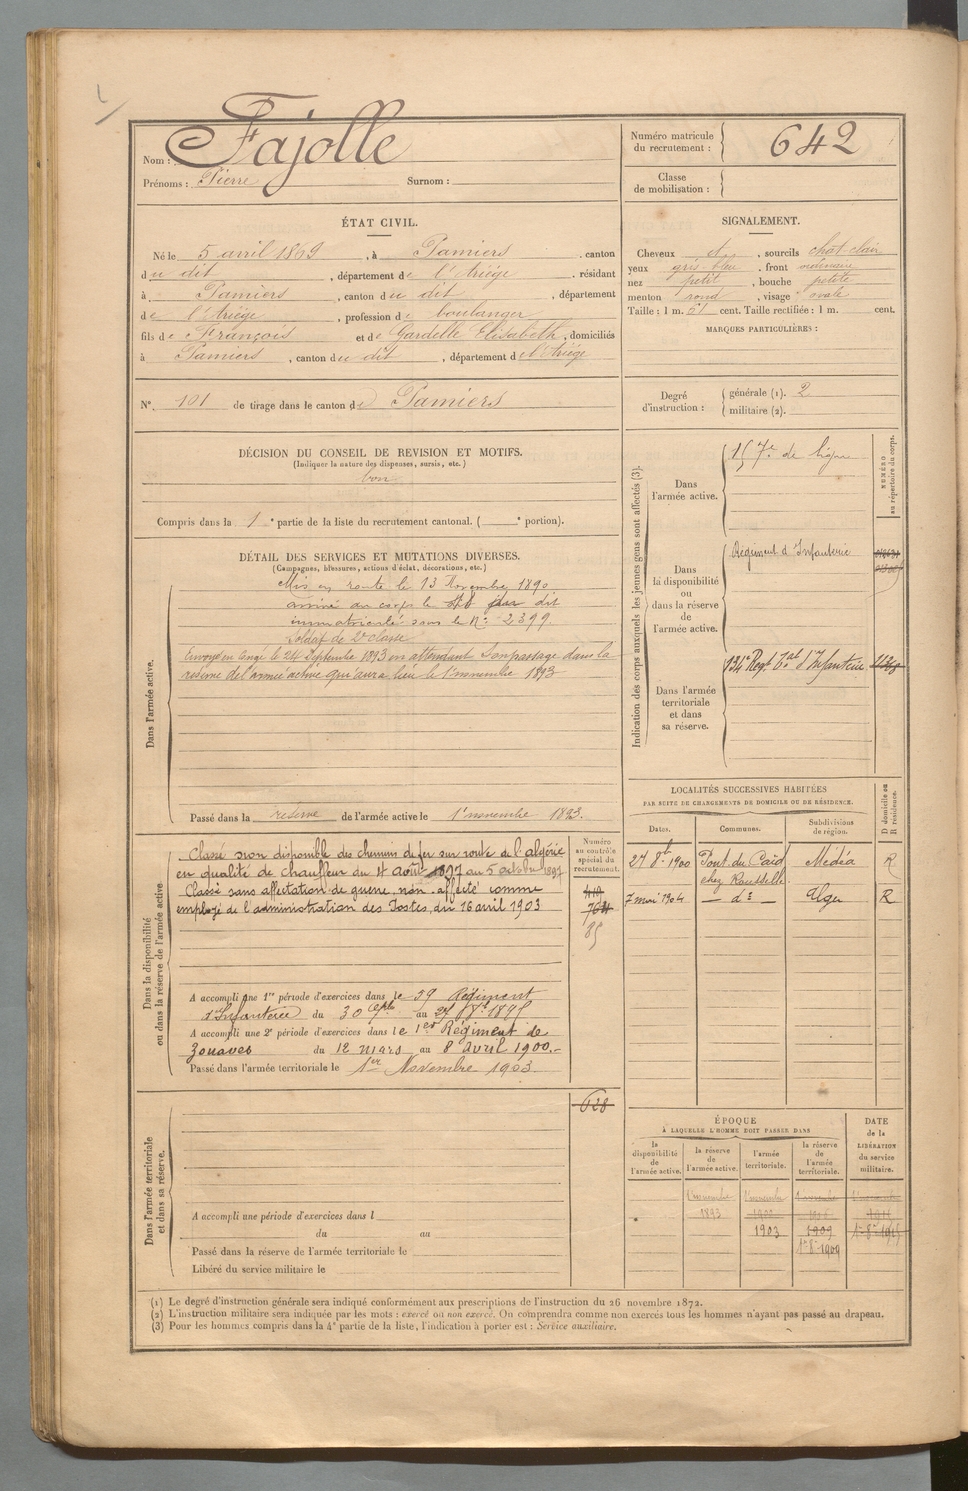 Nom : Fajolle
Prénoms : Pierre Surnom :
Numéro matricule du recrutement : 642
Classe de mobilisation :
ÉTAT CIVIL.
Né le 5 avril 1869, à Pamiers, canton
du dit, département de l'Ariége, résidant
à Pamiers, canton du dit, département
de l'Ariége, profession de boulanger
fils de François et de Gardelle Elisabeth, domiciliés
à Pamiers, canton du dit, département de l'Ariége
N° 101 de tirage dans le canton de Pamiers
SIGNALEMENT.
Cheveux et, sourcils chat clair
yeux gris-bleu, front
nez petit, bouche petite
menton rond, visage ovale
Taille : 1 m. 61 cent. Taille rectifiée : 1 m. cent.
MARQUES PARTICULIÈRES :
Degré d'instruction : générale (1). 2
militaire (2).
DÉCISION DU CONSEIL DE REVISION ET MOTIFS.
(Indiquer la nature des dispenses, sursis, etc.)
bon
Compris dans la 1e partie de la liste du recrutement cantonal. ( e portion).
DÉTAIL DES SERVICES ET MUTATIONS DIVERSES.
(Campagnes, blessures, actions d'éclat, décorations, etc.)
Dans l'armée active.
Mis en route le 13 Novembre 1890
arrivé au corps le jour dit
immatriculé sous le N° 2399
Soldat de 2e classe
Envoyé en congé le 24 Septembre 1893 en attendant son passage dans la
réserve de l'armée active qui aura lieu le 1er novembre 1893
Passé dans la réserve de l'armée active le 1er novembre 1893.
Dans la disponibilité
ou dans la réserve de l'armée active.
Numéro au contrôle spécial du recrutement.
Classé non disponible des chemins de fer sur route de l'algérie
en qualité de chauffeur du 4 août 1897 au 5 octobre 1897
Classé sans affectation de guerre, non-affecté comme
employé de l'administration des Postes, du 16 avril 1903
85
A accompli une 1re période d'exercices dans le 59 Régiment
d'Infanterie du 30 au
A accompli une 2e période d'exercices dans le 1er Régiment de
Zouaves du 12 mars au 8 avril 1900.-
Passé dans l'armée territoriale le 1er Novembre 1903.
Dans l'armée territoriale
et dans sa réserve.
628
A accompli une période d'exercices dans l
du au
Passé dans la réserve de l'armée territoriale le
Libéré du service militaire le
Indication des corps auxquels les jeunes gens sont affectés (3).
NUMÉRO au répertoire du corps.
Dans l'armée active.
157e de ligne
Dans la disponibilité ou dans la réserve de l'armée active.
Régiment d'Infanterie
Dans l'armée territoriale et dans sa réserve.
134e Regt tal d'Infanterie
LOCALITÉS SUCCESSIVES HABITÉES
PAR SUITE DE CHANGEMENTS DE DOMICILE OU DE RÉSIDENCE.
D domicile ou R résidence.
Dates. Communes. Subdivisions de région.
27 8bre 1900 Pont du Caïd Médéa R
chez Rousselle
7 mai 1904 — d° — Alger R
ÉPOQUE
À LAQUELLE L'HOMME DOIT PASSER DANS
DATE de la LIBÉRATION du service militaire.
la disponibilité de l'armée active.
la réserve de l'armée active.
l'armée territoriale.
la réserve de l'armée territoriale.
1 novembre 1893
1903
1909
1er 8bre 1909
(1) Le degré d'instruction générale sera indiqué conformément aux prescriptions de l'instruction du 26 novembre 1872.
(2) L'instruction militaire sera indiquée par les mots : exercé ou non exercé. On comprendra comme non exercés tous les hommes n'ayant pas passé au drapeau.
(3) Pour les hommes compris dans la 4e partie de la liste, l'indication à porter est : Service auxiliaire.